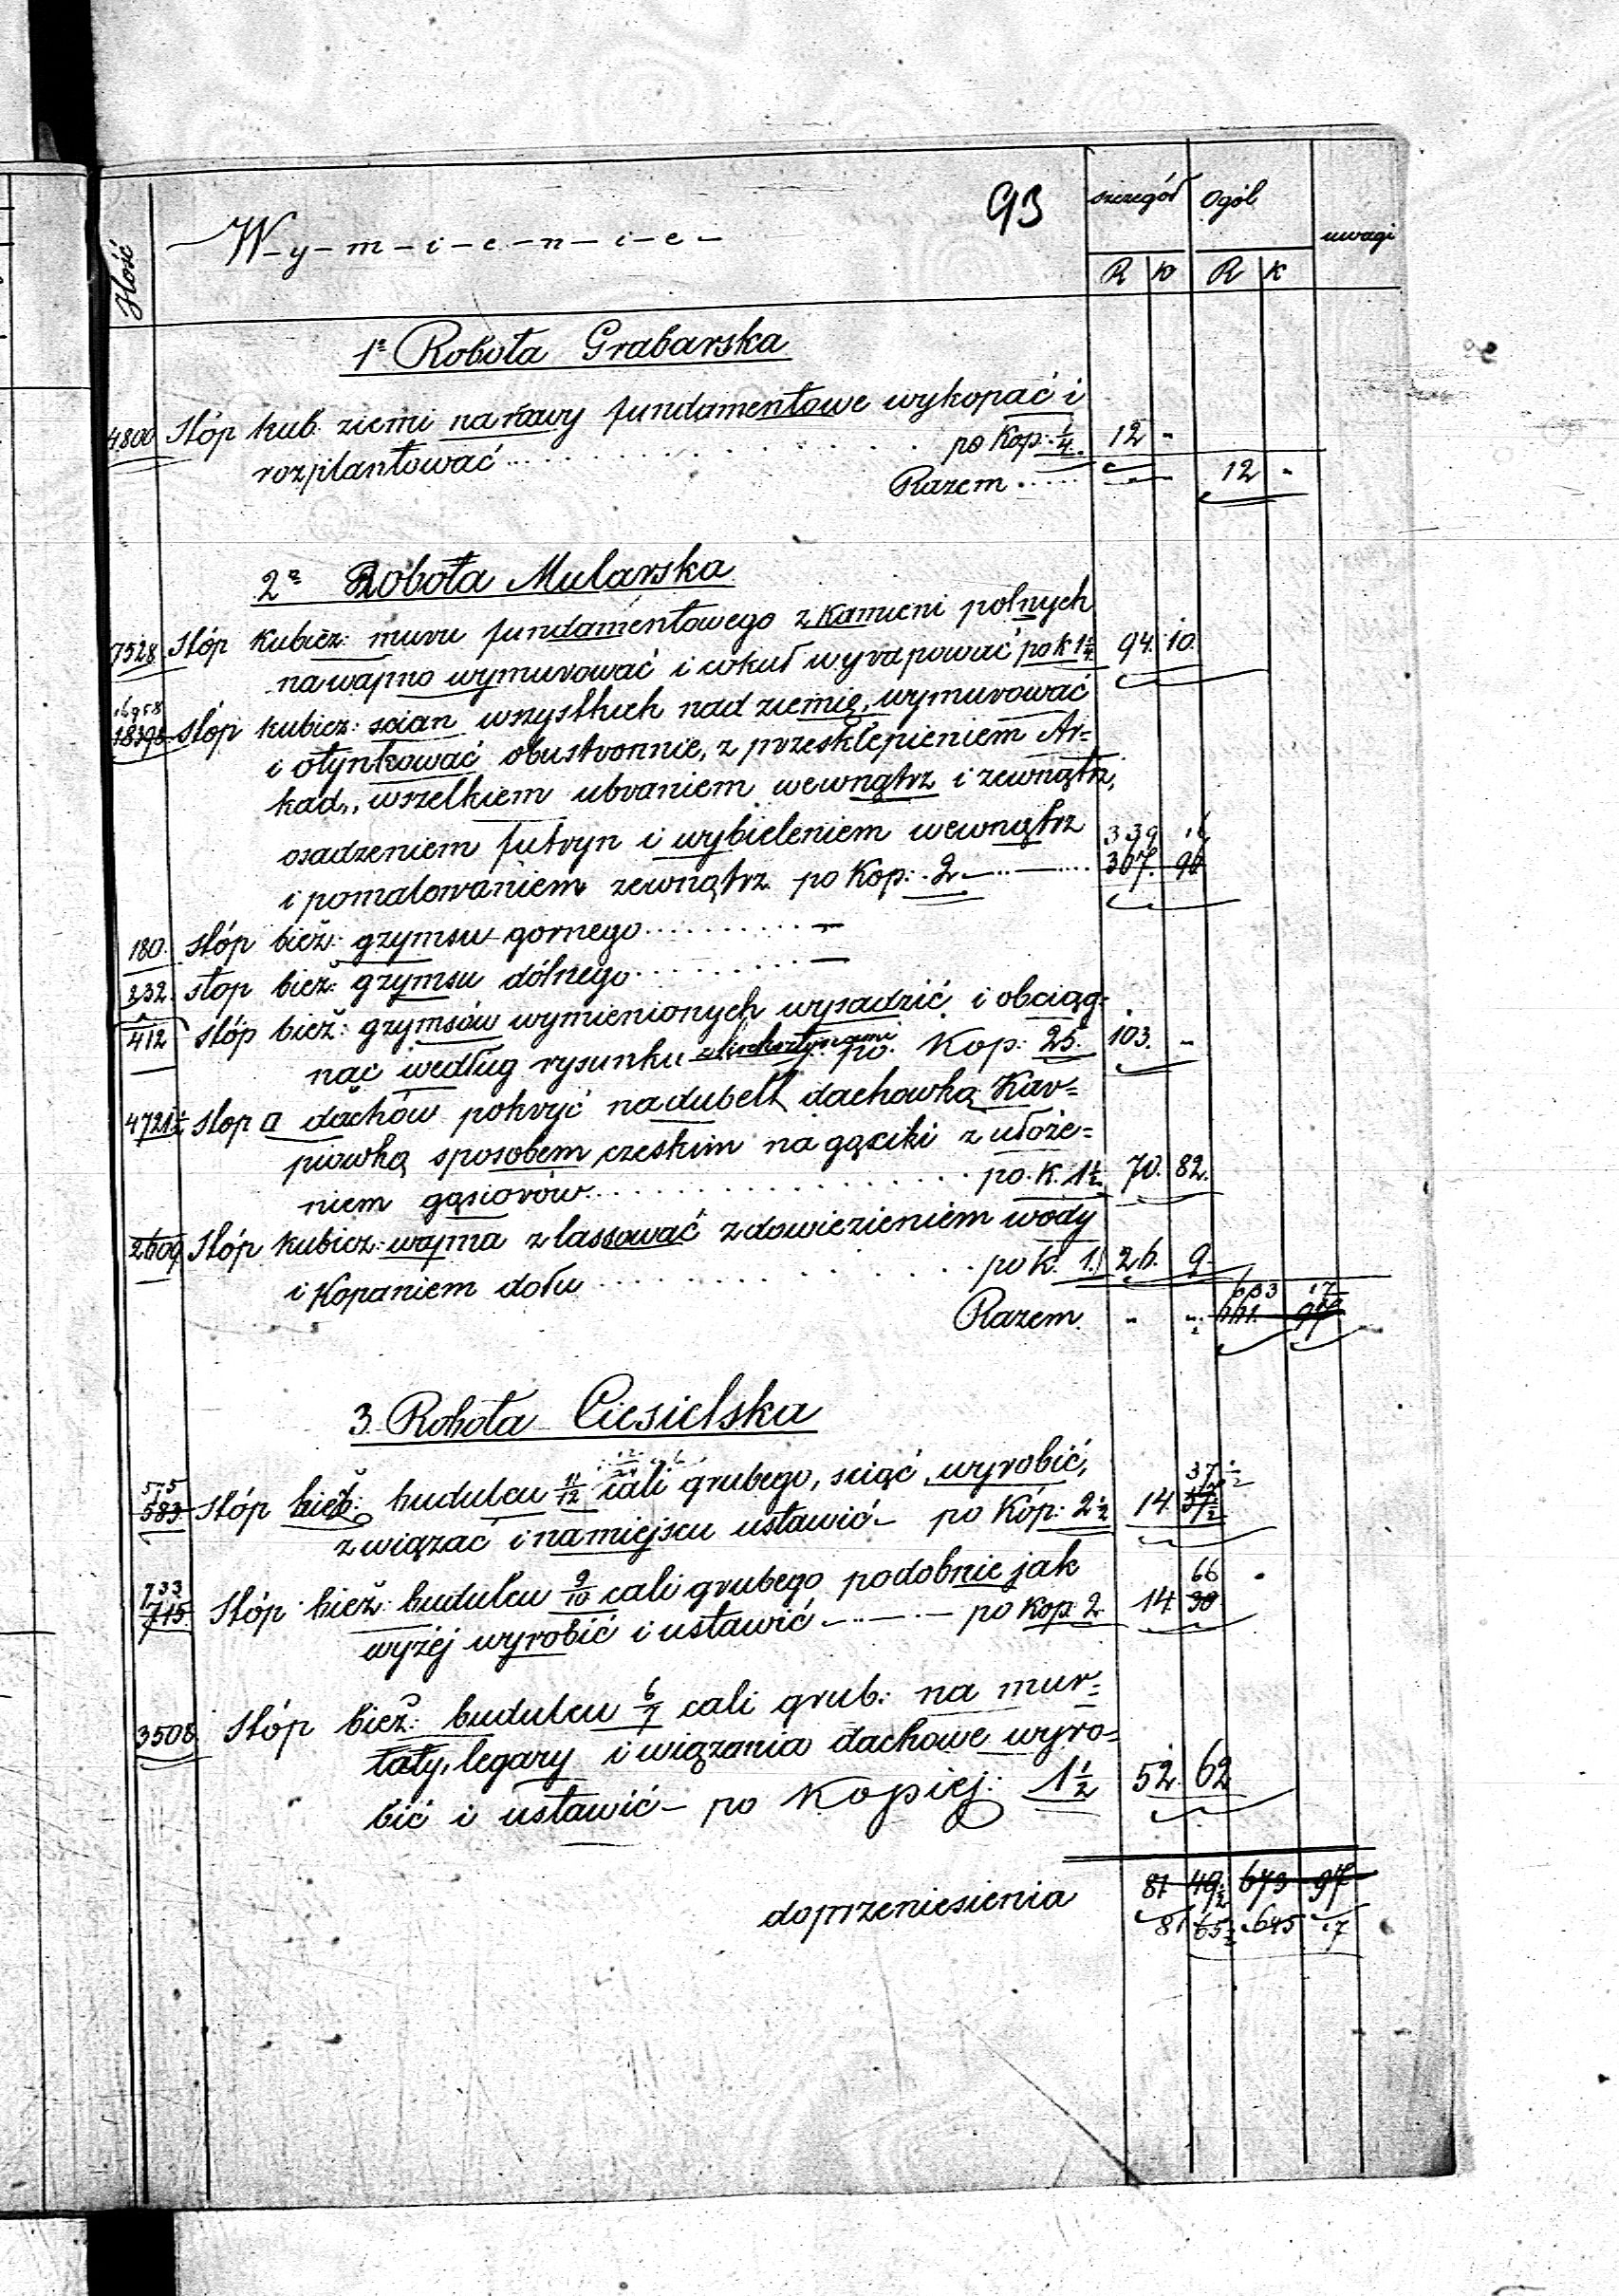 93
szczegół Ogół
Ilość W-y-m-i-e-n-i-e- uwagi
R K R K
1º Robota Grabarska
4800 Stóp kub. ziemi na rawy fundamentowe wykopać i
rozplantować po Kop: ¼. 12 -
Razem 12 -
2ª Robota Mularska
7528 Stóp kubicz: muru fundamentowego z kamieni polnych
na wapno wymurować i cokuł wyrapować po k 1¼ 94. 10.
16958
18398 stóp kubicz: scian wszystkich nad ziemię, wymurować
i otynkować obustronnie, z przesklepieniem Ar=
kad,, wszelkiem ubraniem wewnątrz i zewnątrz,
osadzeniem futryn i wybieleniem wewnątrz 339 16
i pomalowaniem zewnątrz po Kop: 2 367. 96
180. stóp bież: gzymsu gornego —
232. stop bież: gzymsu dólnego —
412 stóp bież: gzymsów wymienionych wysadzić i obciąg-
nąć według rysunku po. Kop: 25. 103. -
4721½ stop □ dachów pokryć na dubelt dachowką Kar=
piowką sposobem czeskim na gąsiki z ułoże=
niem gąsiorów po. K. 1½ 70. 82.
2609 Stóp kubicz: wapna zlassować z dowiezieniem wody
i Kopaniem dołu po K. 1. 26. 9.
633 17
Razem. " " 661. 97
3. Robota Ciesielska
575 37½
583 Stóp bież: budulcu 11/12 cali grubego, sciąć, wyrobić,
związać i na miejscu ustawić - po Kóp: 2½ 14. 57½
733 66
715. Stóp bież: budulcu 9/10 cali grubego podobnie jak
wyżej wyrobić i ustawić - po kop: 2 14. 30.
3508 Stóp bież: budulcu 6/7 cali grub: na mur=
łaty, legary i wiązania dachowe wyro=
bić i ustawić - po Kopiej: 1½ 52. 62
do przeniesienia 81 49½ 673 97
81 65½ 645 17